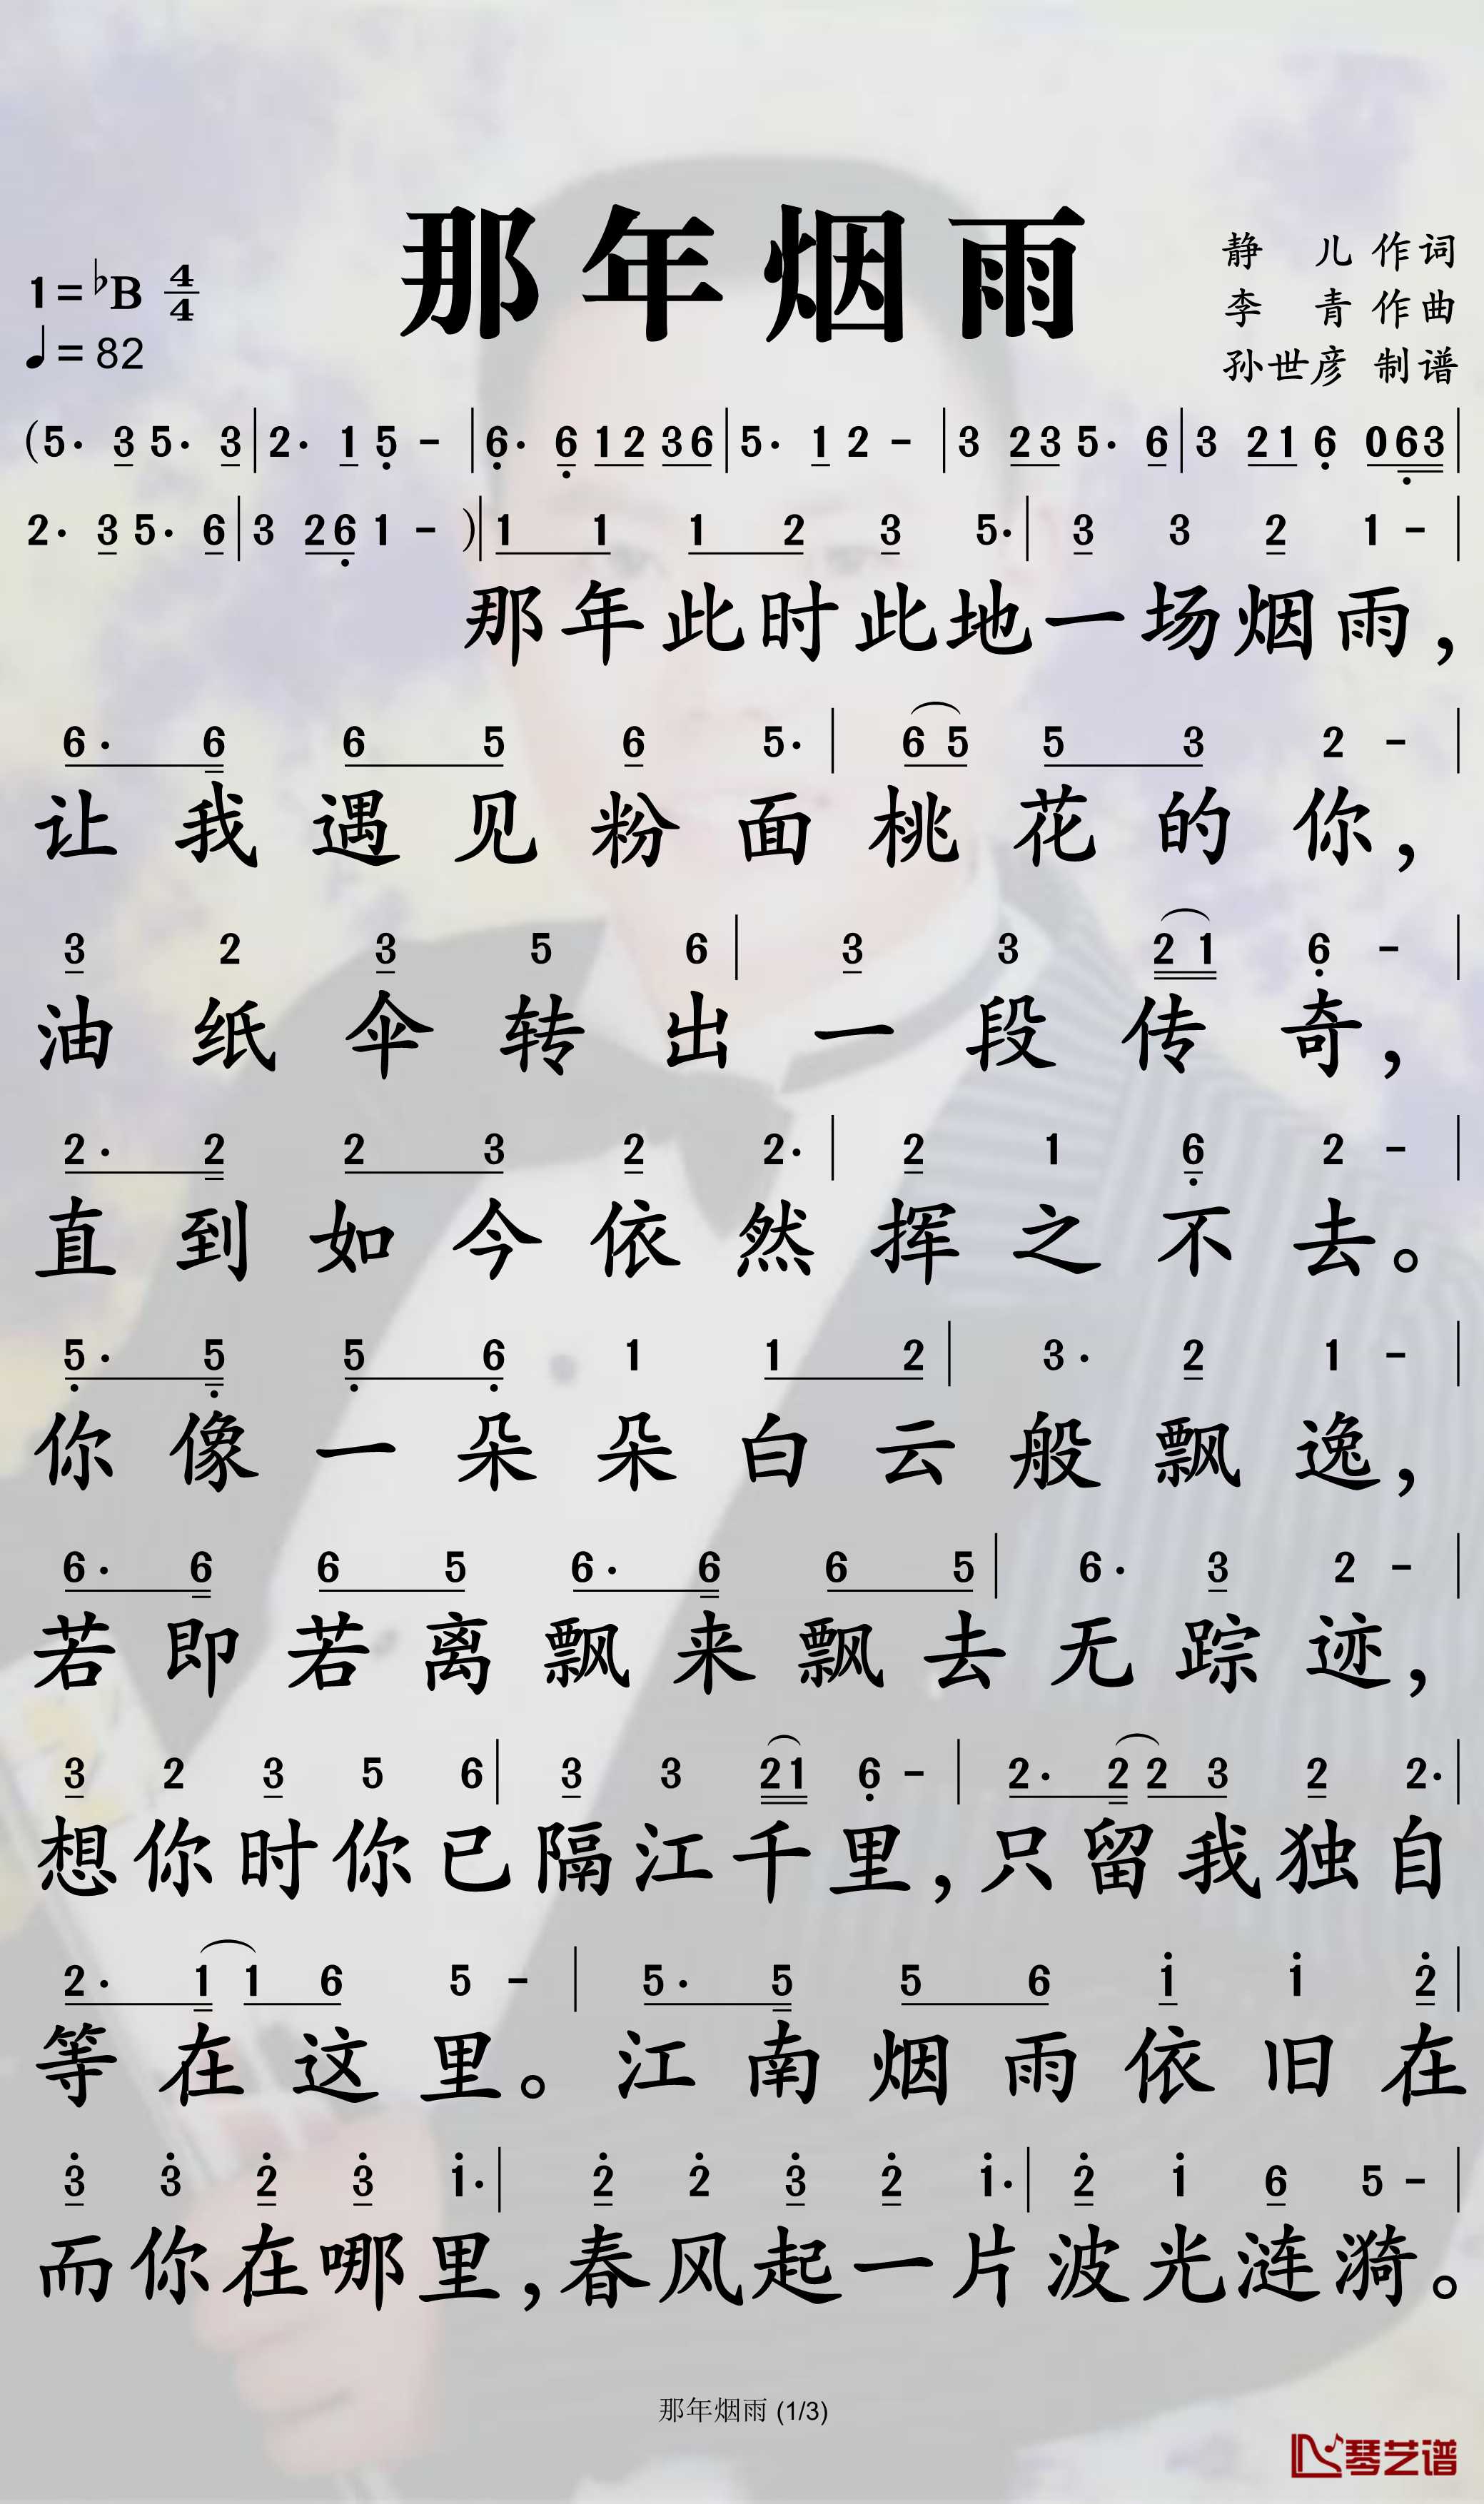 那年烟雨
静 儿 作词
1=♭B 4/4
李 青 作曲
♩=82
孙世彦 制谱
(5· 3 5· 3 | 2· 1 5 - | 6· 6 12 36 | 5· 1 2 - | 3 23 5· 6 | 3 21 6 063 |
2· 3 5· 6 | 3 26 1 - )| 1 1 1 2 3 5· | 3 3 2 1 - |
那年此时此地一场烟雨，
6· 6 6 5 6 5· | 6 5 5 3 2 - |
让我遇见粉面桃花的你，
3 2 3 5 6 | 3 3 2 1 6 - |
油纸伞转出一段传奇，
2· 2 2 3 2 2· | 2 1 6 2 - |
直到如今依然挥之不去。
5· 5 5 6 1 1 2 | 3· 2 1 - |
你像一朵朵白云般飘逸，
6· 6 6 5 6· 6 6 5 | 6· 3 2 - |
若即若离飘来飘去无踪迹，
3 2 3 5 6 | 3 3 21 6 - | 2· 2 2 3 2 2· |
想你时你已隔江千里，只留我独自
2· 1 1 6 5 - | 5· 5 5 6 1 1 2 |
等在这里。江南烟雨依旧在
3 3 2 3 1· | 2 2 3 2 1· | 2 1 6 5 - |
而你在哪里，春风起一片波光涟漪。
那年烟雨 (1/3)
琴艺谱